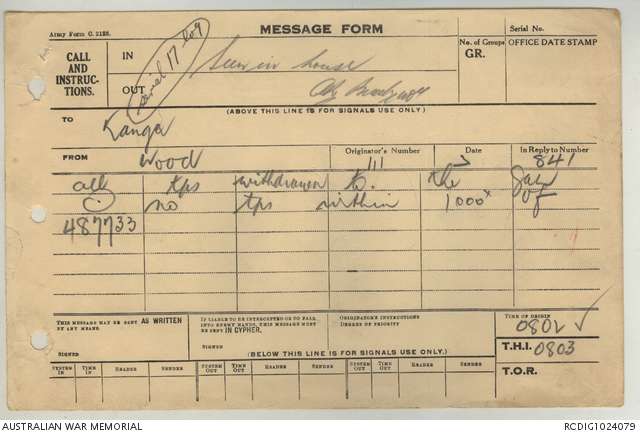 Army Form C. 2128.
MESSAGE FORM
Serial No.
CALL AND INSTRUCTIONS.
IN
OUT
Serial 17 log
Seen in house
No. of Groups
GR.
OFFICE DATE STAMP
(ABOVE THIS LINE IS FOR SIGNALS USE ONLY.)
TO Kanga
FROM Wood
Originator's Number 111
Date 7
In Reply to Number 841
all tps withdrawn to. the
no tps within 1000x of
487733
THIS MESSAGE MAY BE SENT AS WRITTEN BY ANY MEANS.
SIGNED
IF LIABLE TO BE INTERCEPTED OR TO FALL INTO ENEMY HANDS, THIS MESSAGE MUST BE SENT IN CYPHER.
SIGNED
ORIGINATOR'S INSTRUCTIONS
DEGREE OF PRIORITY
TIME OF ORIGIN
0802 ✓
T.H.I. 0803
T.O.R.
(BELOW THIS LINE IS FOR SIGNALS USE ONLY.)
SYSTEM IN
TIME IN
READER
SENDER
SYSTEM OUT
TIME OUT
READER
SENDER
SYSTEM OUT
TIME OUT
READER
SENDER
AUSTRALIAN WAR MEMORIAL
RCDIG1024079